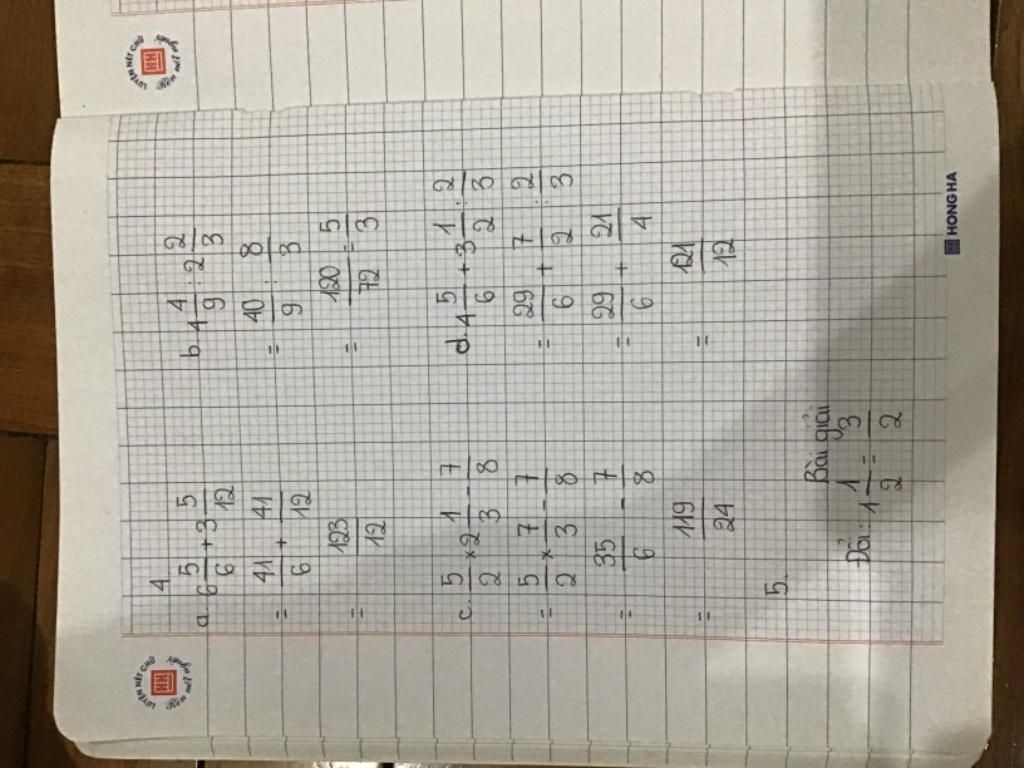 LUYỆN NÉT CHỮ
4
a. 6 5/6 + 3 5/12
= 41/6 + 41/12
= 123/12
b. 4 4/9 : 2 2/3
= 40/9 : 8/3
= 120/72 = 5/3
c. 5/2 × 2 1/3 - 7/8
= 5/2 × 7/3 - 7/8
= 35/6 - 7/8
= 119/24
d. 4 5/6 + 3 1/2 : 2/3
= 29/6 + 7/2 : 2/3
= 29/6 + 21/4
= 121/12
5.
Bài giải
Đổi: 1 1/2 = 3/2
LUYỆN NÉT CHỮ
HONG HA